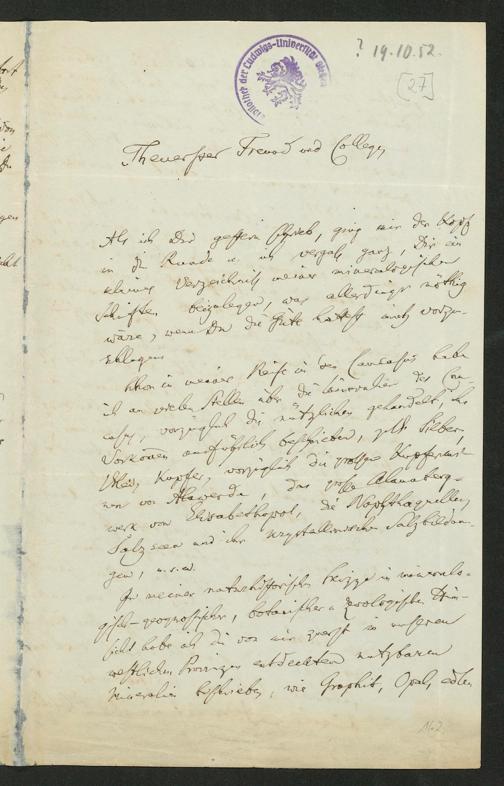 ? 19.10.52.
[27]
Bibliothek der Ludwigs-Universität Gießen
Theuerster Freund und College,
Als ich Dir gestern schrieb, ging mir der Kopf
in die Runde u. ich vergaß ganz, Dir ein
Verzeichniß meiner mineralogischen
Schriften beizulegen, was allerdings nöthig
wäre, wenn Du die Güte hattest mich vorzu-
schlagen.
Schon in meiner Reise in den Caucasus habe
ich an vielen Stellen über die Mineralien des Cau-
casus, vorzüglich die nützlichen gehandelt, ihr
Vorkommen ausführlich beschrieben, z.B. Silber,
Blei, Kupfer, vorzüglich die Kupfer
von, das große Alaunberg-
werk von Elisabethopol, die Naphthaquellen,
Salzseen und ihr krystallinische Salzbildun-
gen, u.s.w.
In meiner naturhistorischen Skizze in mineralo-
gisch-geognostischer, botanischer u. zoologischer Hin-
sicht habe ich die von mir zuerst in unseren
westlichen Provinzen entdeckten nutzbaren
Mineralien beschrieben, wie Graphit, Opal, edlen